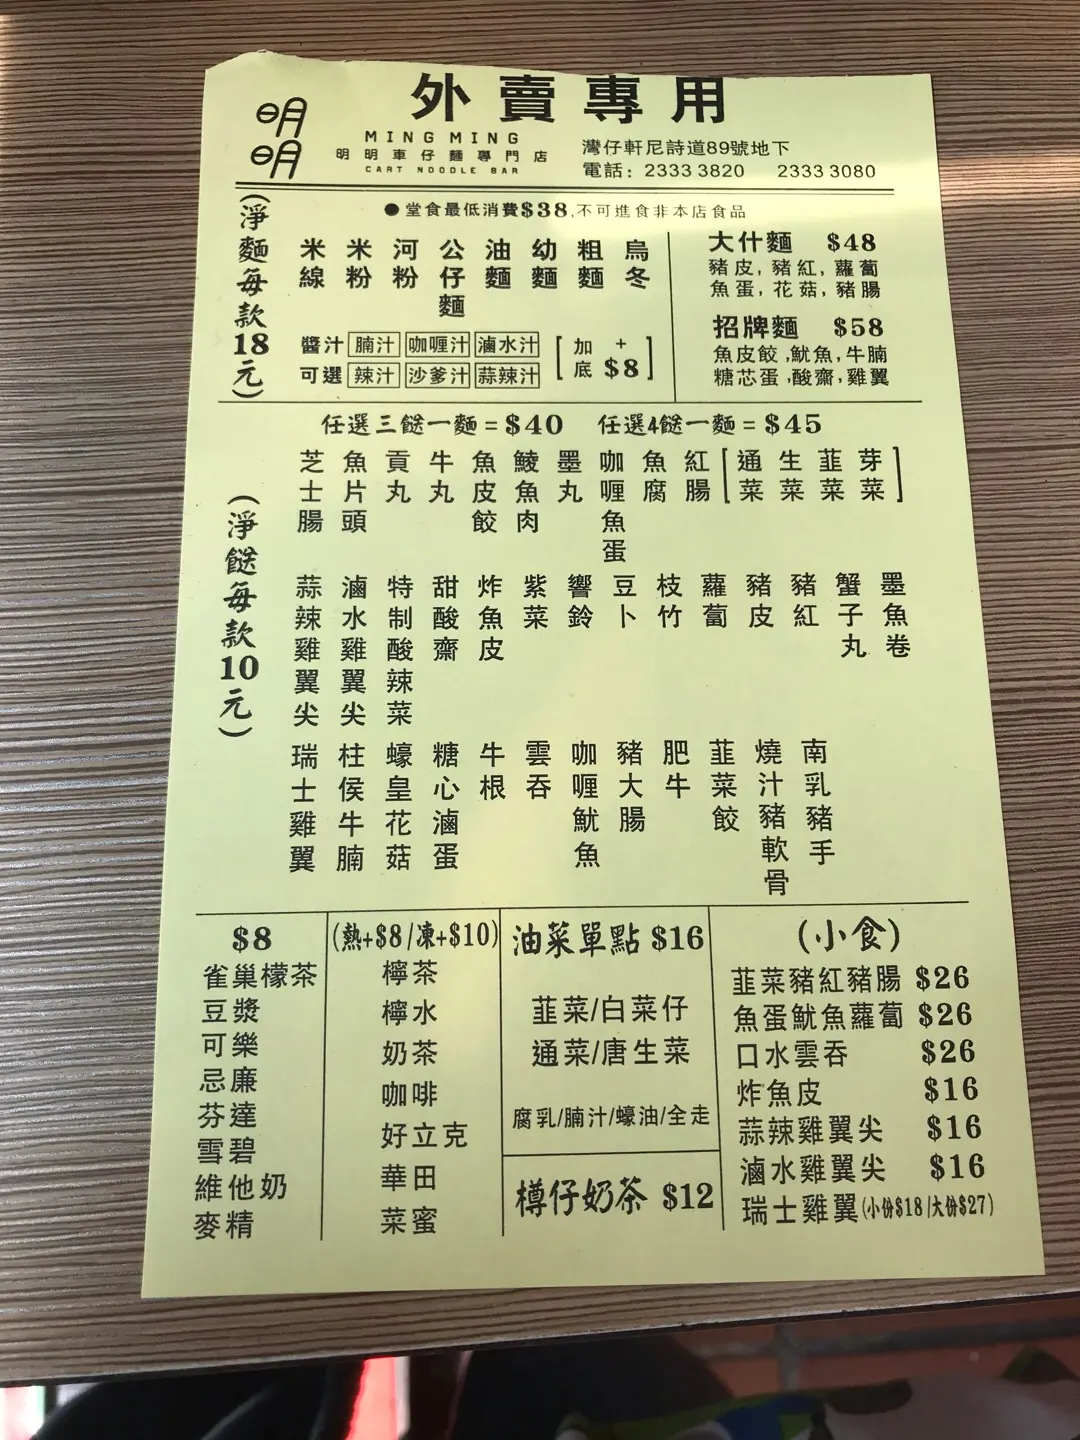 外賣專用
明明
MING MING
明明車仔麵專門店
CART NOODLE BAR
灣仔軒尼詩道89號地下
電話: 2333 3820 2333 3080
●堂食最低消費$38,不可進食非本店食品
(淨麵每款18元)
米線 米粉 河粉 公仔麵 油麵 幼麵 粗麵 烏冬
醬汁可選 腩汁 咖喱汁 滷水汁
辣汁 沙爹汁 蒜辣汁
[加底+$8]
大什麵 $48
豬皮,豬紅,蘿蔔
魚蛋,花菇,豬腸
招牌麵 $58
魚皮餃,魷魚,牛腩
糖芯蛋,酸齋,雞翼
任選三餸一麵=$40 任選4餸一麵=$45
(淨餸每款10元)
芝士腸 魚片頭 貢丸 牛丸 魚皮餃 鯪魚肉 墨丸 咖喱魚蛋 魚腐 紅腸 [通菜 生菜 韮菜 芽菜]
蒜辣雞翼尖 滷水雞翼尖 特制酸辣菜 甜酸齋 炸魚皮 紫菜 響鈴 豆卜 枝竹 蘿蔔 豬皮 豬紅 蟹子丸 墨魚卷
瑞士雞翼 柱侯牛腩 蠔皇花菇 糖心滷蛋 牛根 雲吞 咖喱魷魚 豬大腸 肥牛 韮菜餃 燒汁豬軟骨 南乳豬手
$8
雀巢檬茶
豆漿
可樂
忌廉
芬達
雪碧
維他奶
麥精
(熱+$8/凍+$10)
檸茶
檸水
奶茶
咖啡
好立克
華田
菜蜜
油菜單點 $16
韮菜/白菜仔
通菜/唐生菜
腐乳/腩汁/蠔油/全走
樽仔奶茶 $12
(小食)
韮菜豬紅豬腸 $26
魚蛋魷魚蘿蔔 $26
口水雲吞 $26
炸魚皮 $16
蒜辣雞翼尖 $16
滷水雞翼尖 $16
瑞士雞翼(小份$18/大份$27)